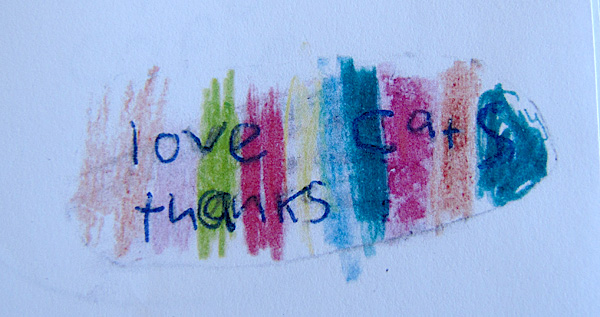 love cats
thanks